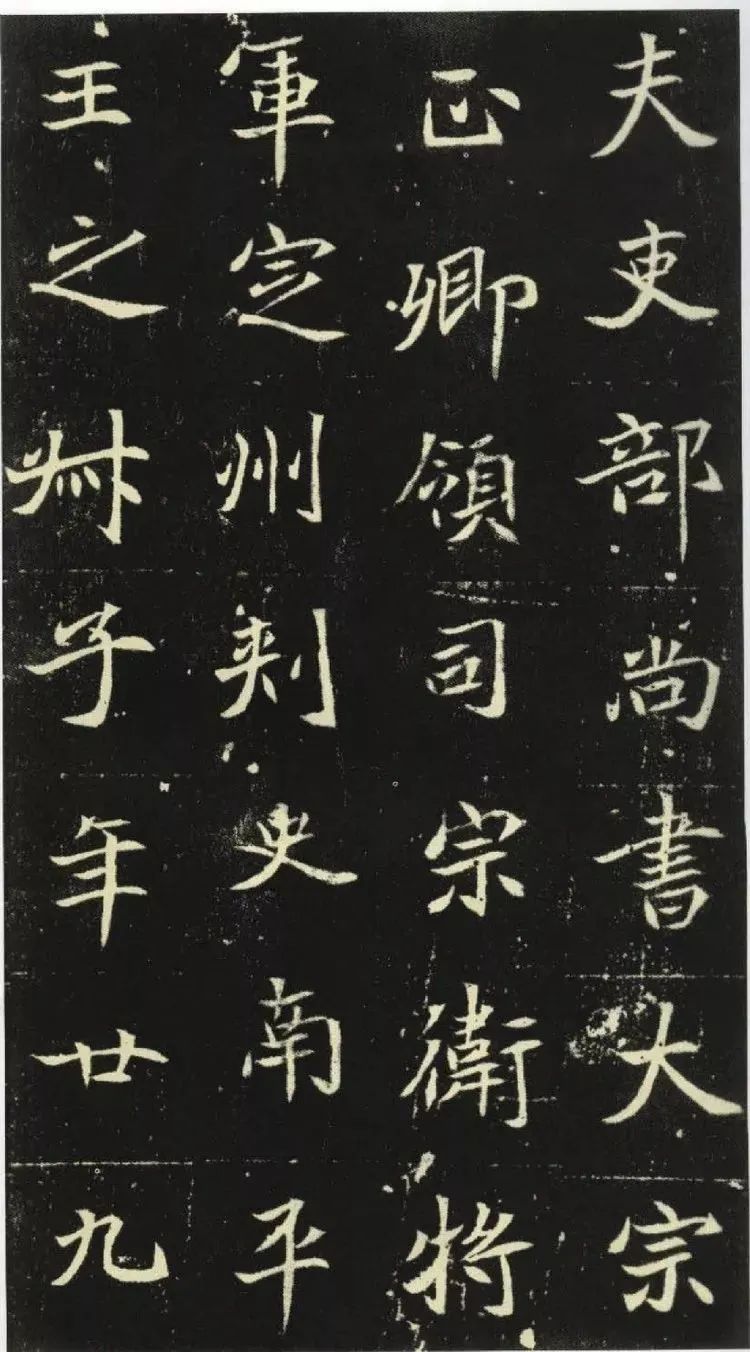 夫吏部尚書大宗
正卿領司宗衛將
軍定州刾史南平
王之叔子年廿九